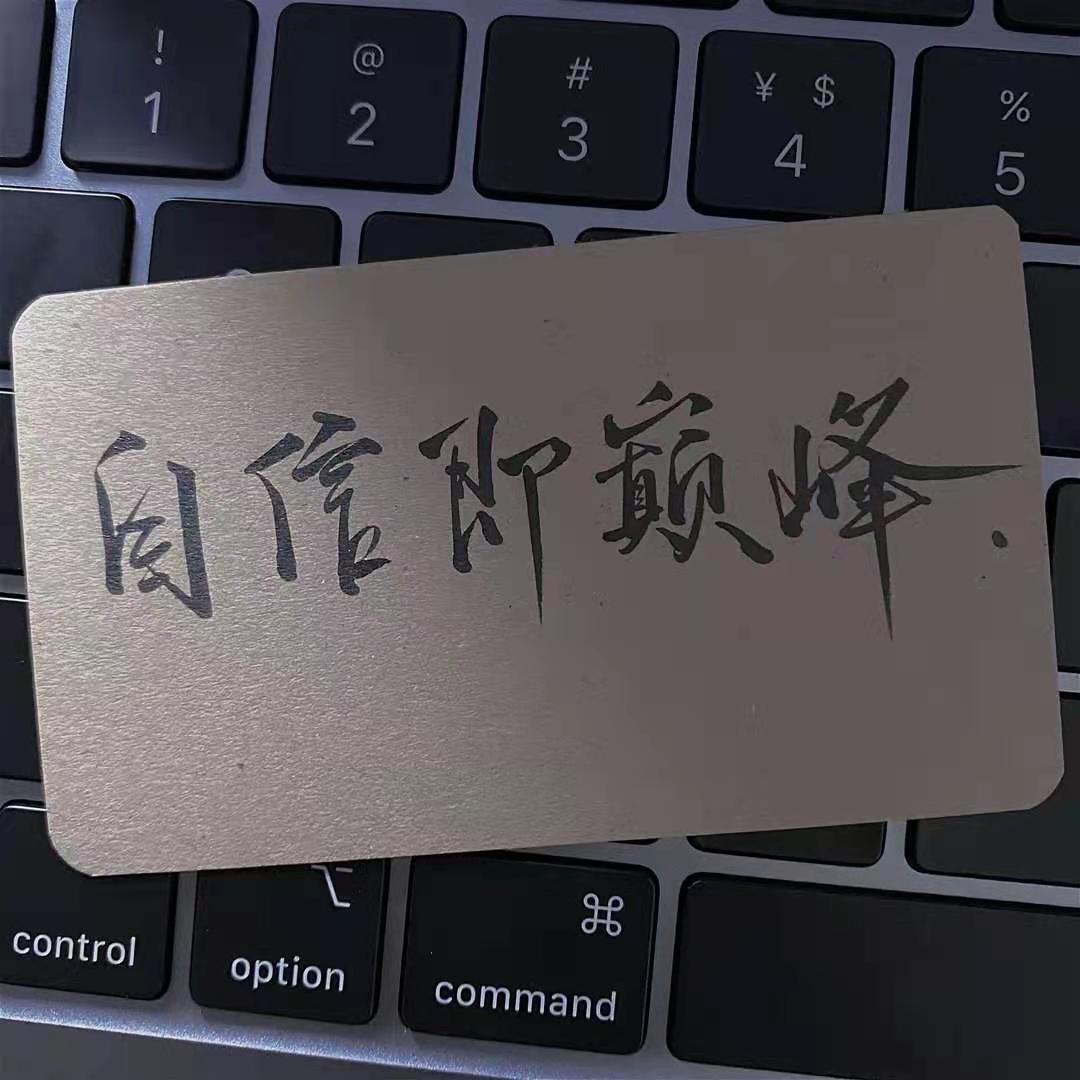 ! @ # ¥ $ %
1 2 3 4 5
自信即巅峰.
⌥ ⌘
control option command